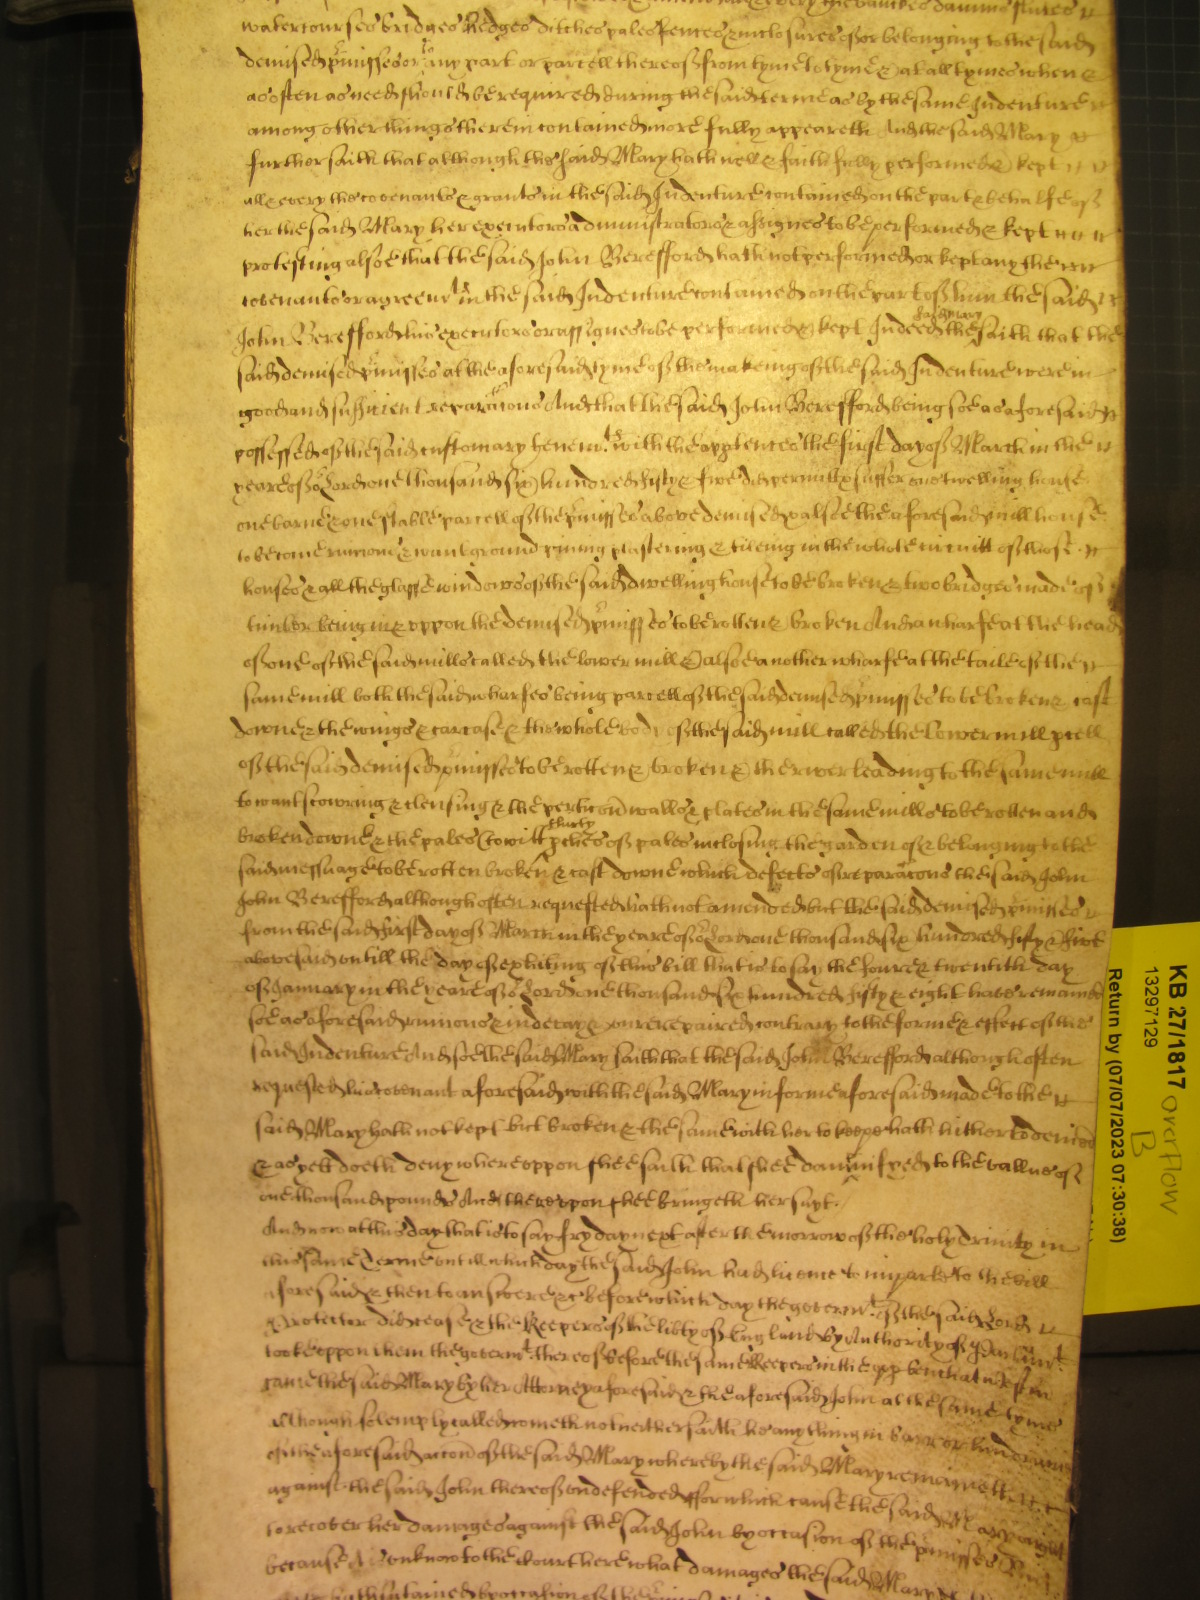 watercourses bridges hedges ditches pales fences & inclosures of or belonging to the said
demised p'misses or to any part or parcell thereof from tyme to tyme & at all tymes when &
as often as need should be & require dureing the said terme as by the same Indenture
among other things therein contained more fully appeareth And the said Mary
further saith that although the said Mary hath well & faithfully performed & kept
all & every the covenants & grants in the said Indenture contained on the part & behalfe of
her the said Mary her executors administrators & assignes to be performed & kept
protesting alsoe that the said John Berefford hath not performed or kept any the
covenants or agreemts in the said Indenture contained on the part of him the said
John Berefford his executors or assignes to be performed & kept Indeed the said Mary saith that the
said demised p'misses at the aforesaid tyme of the makeing of the said Indenture were in
good and sufficient reparacions And that the said John Berefford being soe as aforesaid
possessed of the said customary tenemts with the apptences the first day of March in the
yeare of or Lord one thousand six hundred fifty & five did permitt & suffer one dwelling house
one barne & one stable parcell of the p'misses above demised & alsoe the aforesaid mill house
to become ruinous & want ground pining plastering & tileing in the whole circuitt of those
houses & all the glasse windowes of the said dwelling house to be broken & two bridges made of
timber being in & uppon the demised p'misses to be rotten & broken And a wharfe at the head
of one of the said mills called the lower mill & alsoe another wharfe at the taile of the
same mill both the said wharfes being parcell of the said demised p'misses to be broken & cast
downe & the wings & carcase & the whole body of the said mill called the Lower mill pcell
of the said demised p'misses to be rotten & broken & the river leading to the same mill
to want scowring & clensing & the walls & plates in the same mills to be rotten and
broken downe & the pales (to witt) thirty pches of pales inclosing the garden of & belonging to the
said messuage to be rotten broken & cast downe which defects of reparacons the said John
John Berefford although often requested hath not amended but the said demised p'misses
from the said first day of March in the yeare of or Lord one thousand six hundred fifty & five
abovesaid untill the day of exhibiting of this bill that is to say the foure & twentith day
of January in the yeare of or Lord one thousand six hundred fifty & eight hath remained
soe as aforesaid ruinous & in decay & unrepaired contrary to the forme & effect of the
said Indenture And soe the said Mary saith that the said John Berefford although often
requested his covenant aforesaid with the said Mary in forme aforesaid made to the
said Mary hath not kept but broken & the same with her to keepe hath hitherto denied
& as yett doeth deny whereuppon shee saith that shee damnifyed to the vallue of
one thousand pounds And thereuppon shee bringeth her suyt.
And now at this day that is to say fryday next after the morrow of the holy Trinity in
this same Terme untill which day the said John had licence to imparle to the bill
aforesaid & then to answere &c before which day the governmt of the said Lord
Protector did cease & the Keepers of the libty of England by Authority of Parliamt
tooke uppon them the governmt thereof before the same Keepers in the upp bench at Westm
came the said Mary by her Attorney aforesaid & the aforesaid John at the same tyme
Although solemply called cometh not neither saith he any thing in barr or hinderance
of the aforesaid accon of the said Mary whereby the said Mary remaineth
against the said John thereof undefended for which cause the said Mary ought
to recover her damages against the said John by occasion of the p'misses But
because it is unknow to the Court here what damages the said Mary
hath sustained by occasion of the
KB 27/1817 overflow
13297129 B
Return by (07/07/2023 07:30:38)